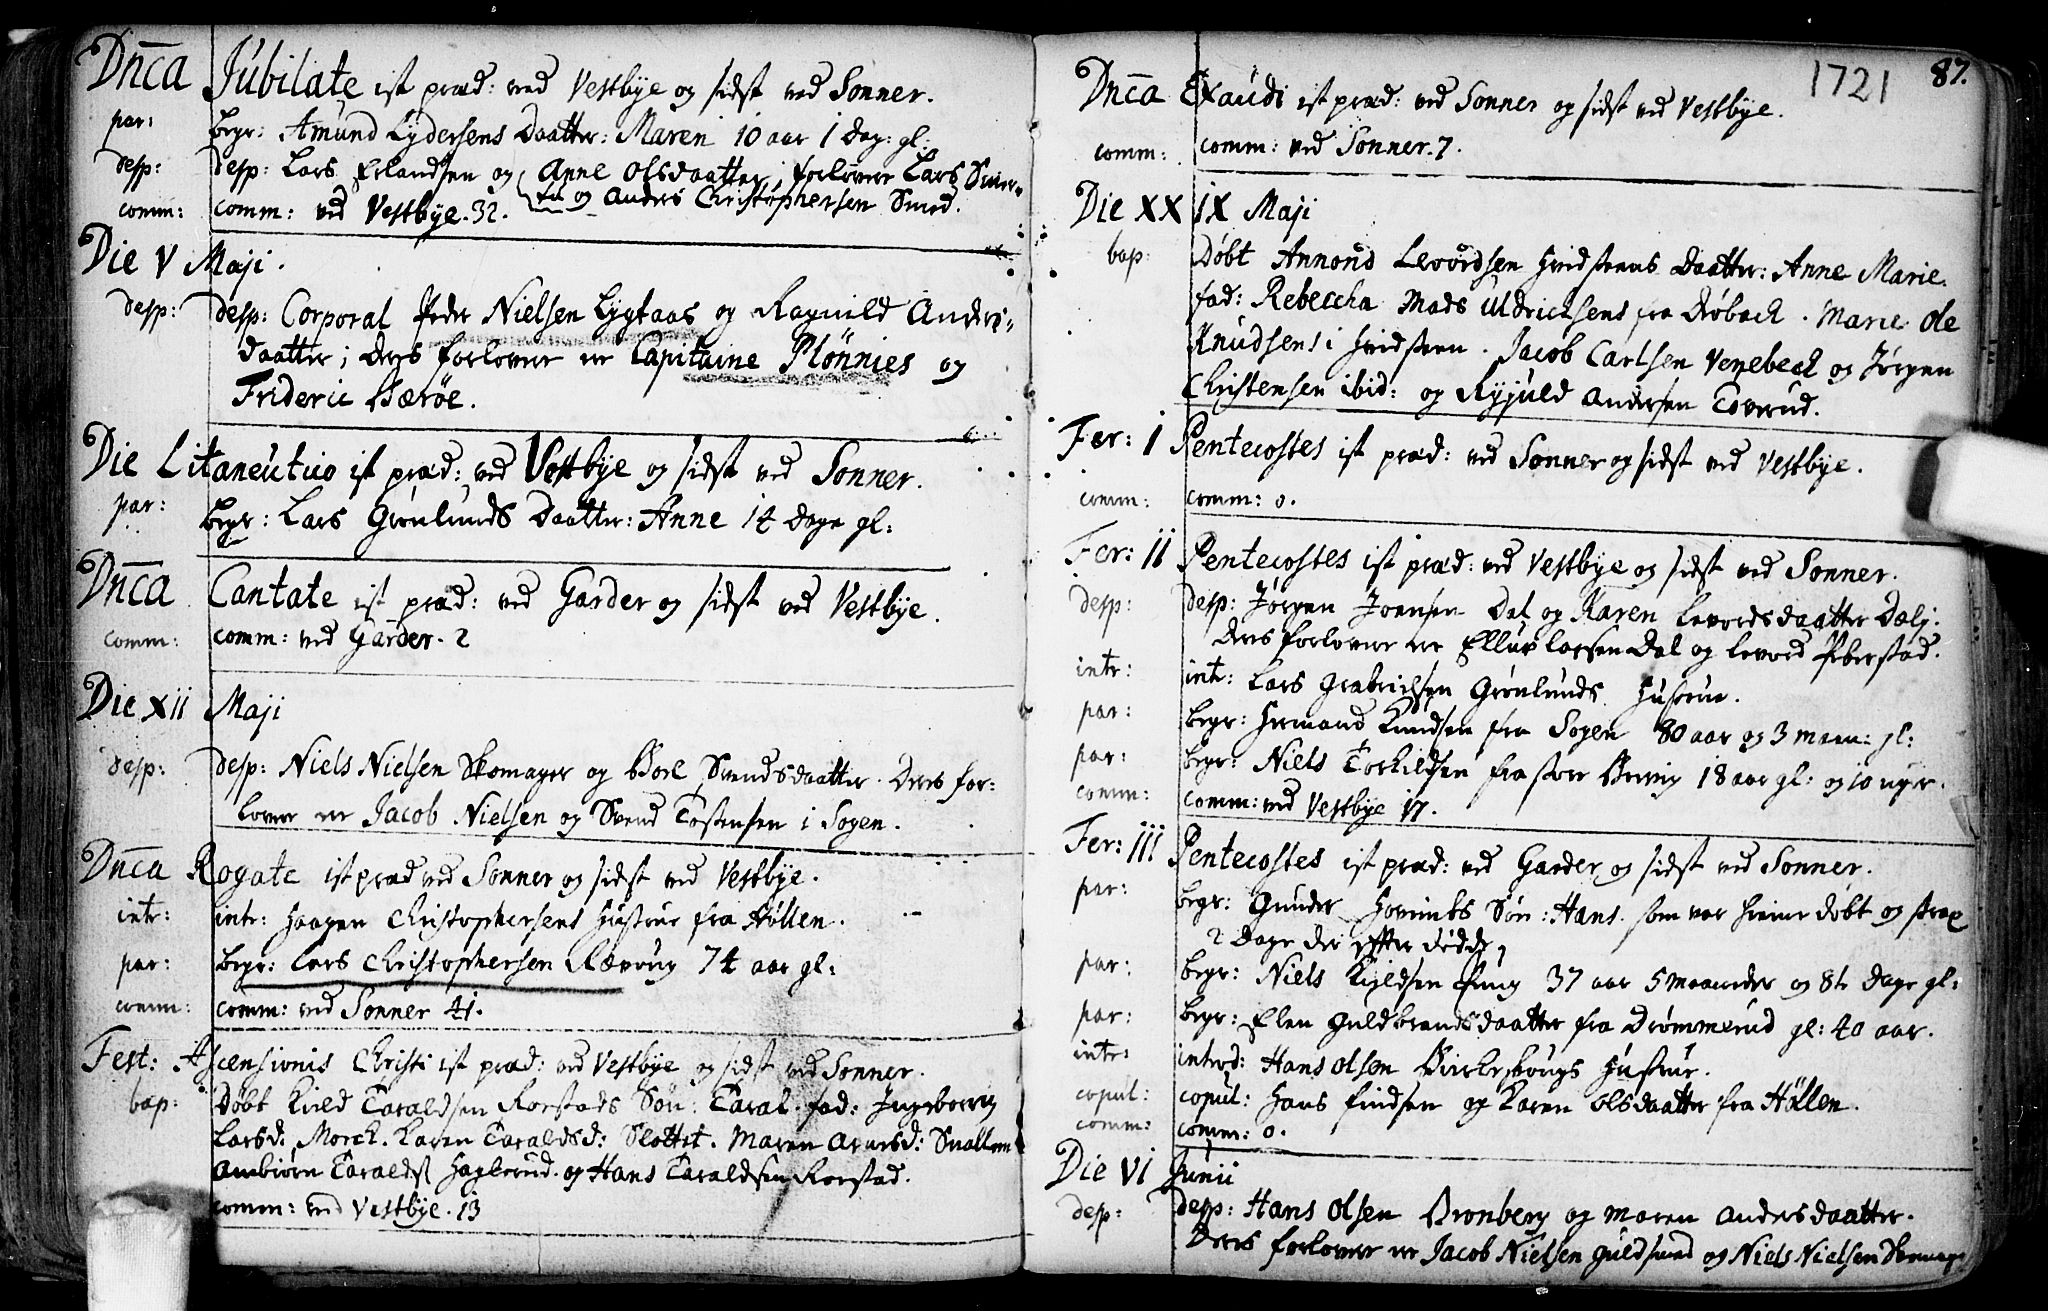 Dnca Jubilate ist præd: ved Vestbye og sidst ved Sonner.
par: begr: Amund Lydersens Daatter: Maren 10 aar 1 Dag: gl:
desp: desp: Lars Erlandsen og Anne Olsdaatter; forlovere Lars
og Anders Christophersen Smed.
comm: comm: ved Vestbye. 32.
Die V Maji.
desp: desp: Corporal Peder Nielsen Lygtaas og Ragnild Anders-
daatter; Deres forlovere er Capitaine Plönnies og
Frideric Bærøe.
Die Litaneutico ist præd: ved Vestbye og sidst ved Sonner.
par: begr: Lars Grønlunds Daatter: Anne 14 Dage gl:
Dnca Cantate ist præd: ved Garder og sidst ved Vestbye.
comm: comm: ved Garder. 2
Die XII Maji
desp: desp: Niels Nielsen Skomager og Boel Svendsdaatter. Deres for-
lovere er Jacob Nielsen og Svend Tostensen i Sogen.
Dnca Rogate ist præd ved Sonner og sidst ved Vestbye.
intr: intr: Haagen Christophersens Hustrue fra Höllen.
par: begr: Lars Christophersen Rævoug 74 aar gl:
comm: comm: ved Sonner 41.
Fest: Ascensionis Christi ist præd: ved Vestbye og sidst ved Sonner.
bap: Døbt Kield Taraldsen Rorstads Søn: Taral. fad: Ingeborrig
Larsd: Morck. Karen Taraldsd: Slottet. Maren
Ambiørn Taralds Haglerud. og Hans Taraldsen Rorstad.
comm: ved Vestbye. 13
1721 87.
Dnca Exaudi ist præd: ved Sonner og sidst ved Vestbye.
comm: comm: ved Sonner. 7.
Die XXIX Maji
bap: Døbt Annond Levordsen Hvidsteens Daatter: Anne Marie.
fad: Rebeccha Mads Uldrichsens fra Drøback. Marie Ole
Knudsens i Hvidsteen. Jacob Carlsen Venebeck og Jørgen
Christensen ibid: og Andersen Toverud.
Fer: I Pentecostes ist præd: ved Sonner og sidst ved Vestbye.
comm: comm: 0.
Fer: II Pentecostes ist præd: ved Vestbye og sidst ved Sonner.
desp: desp: Jørgen Joensen Dal og Karen Levordsdaatter Dal;
Deres forlovere er Ellup Larsen Dal og Levord
intr: intr: Lars Grønlunds Hustrue.
par: begr: Hermand Knudsen fra Sogen 80 aar og 3 maan: gl:
par: begr: Niels Torkildsen fra store 18 aar gl: og 10 uger.
comm: comm: ved Vestbye 17.
Fer: III Pentecostes ist præd: ved Garder og sidst ved Sonner.
par: begr: Gunder Søn: Hans. som var hieme døbt og strax
2 Dage der efter døde.
par: begr: Niels Kieldsen 37 aar 5 maaneder og 8te Dage gl:
par: begr: Elen Guldbrandsdaatter fra Drømmerud gl: 40 aar.
intr: introd: Hans Olsen Hustrue.
copul: copul: Hans findsen og Karen Olsdaatter fra Höllen.
comm: comm: 0.
Die VI Junii
desp: desp: Hans Olsen Bronberg og Maren Andersdaatter.
Deres forlovere er Jacob Nielsen Guldsmed og Niels Nielsen